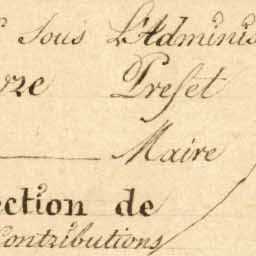 sous L'Adminis
Prefet
Maire
ection de
Contributions